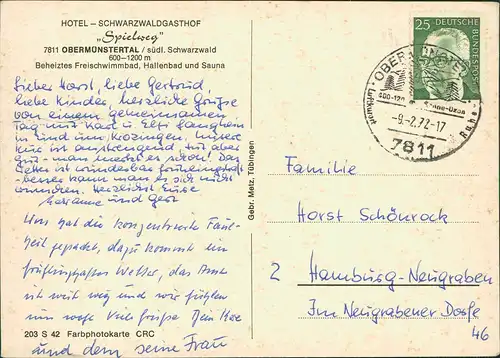 HOTEL – SCHWARZWALDGASTHOF
„Spielweg"
7811 OBERMÜNSTERTAL / südl. Schwarzwald
600–1200 m
Beheiztes Freischwimmbad, Hallenbad und Sauna
Lieber Horst, liebe Gertrud
liebe Kinder, herzliche Grüße
von einem gemeinsamen
Tag mit Karl u Elfi
in Eurem Krozingen. Unsere
Kur ist anstrengend, tut aber
gut – man merkt es schon. Das
Wetter ist wunderbar frühlingshaft –
besser kann man es sich nicht
wünschen. Herzlichst Eure
Marianne und Gert
Uns hat die konzentrierte Faul-
heit gepackt, dazu kommt ein
frühlingshaftes Wetter, das Amt
ist weit weg und wir fühlen
uns wohl Viele Grüße Dein Karl
und dem seine Frau
203 S 42 Farbphotokarte CRC
Gebr. Metz, Tübingen
25 DEUTSCHE BUNDESPOST
OBERMÜNSTERTAL
600-120
Sonne-Ozon
Luftkurort
Ruhe
-9.-2.72-17
7811
Familie
Horst Schönrock
2 Hamburg-Neugraben
Im Neugrabener Dorfe
46